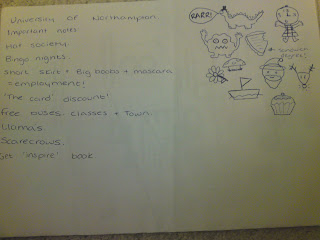 University of Northampton
Important notes
Hot society
Bingo nights
Short skirt + Big boobs + mascara
= employment!
'The card' discount'
Free buses. classes + Town.
Llama's.
Scarecrows.
Get 'inspire' book
RARR!